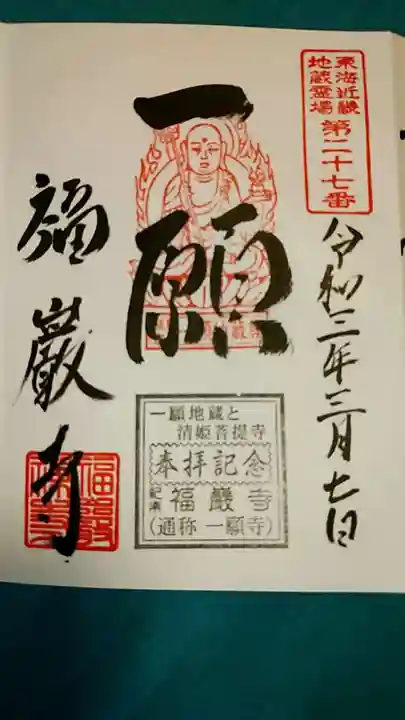 東海近畿
地蔵霊場
第二十七番
令和三年三月七日
一願
一願地蔵と
清姫菩提寺
奉拝記念
紀南 福巖寺
(通称 一願寺)
福巖寺